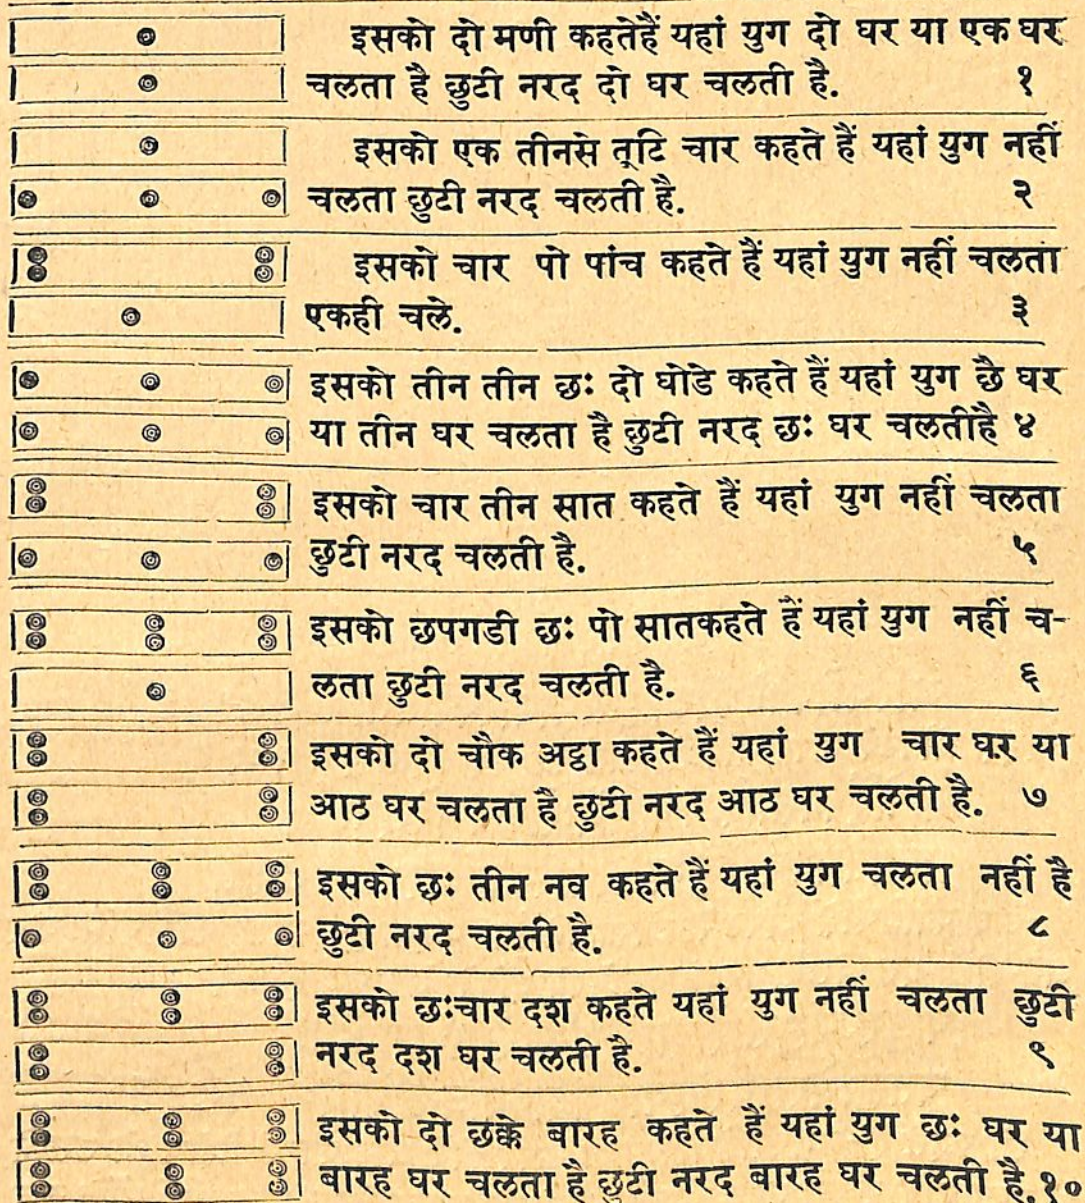 इसको दो मणी कहतेहैं यहां युग दो घर या एक घर
चलता है छुटी नरद दो घर चलती है. १
इसको एक तीनसे त्रूटि चार कहते हैं यहां युग नहीं
चलता छुटी नरद चलती है. २
इसको चार पो पांच कहते हैं यहां युग नहीं चलता
एकही चले. ३
इसको तीन तीन छः दो घोडे कहते हैं यहां युग छै घर
या तीन घर चलता है छुटी नरद छः घर चलतीहै ४
इसको चार तीन सात कहते हैं यहां युग नहीं चलता
छुटी नरद चलती है. ५
इसको छपगडी छः पो सातकहते हैं यहां युग नहीं च-
लता छुटी नरद चलती है. ६
इसको दो चौक अट्ठा कहते हैं यहां युग चार घर या
आठ घर चलता है छुटी नरद आठ घर चलती है. ७
इसको छः तीन नव कहते हैं यहां युग चलता नहीं है
छुटी नरद चलती है. ८
इसको छःचार दश कहते यहां युग नहीं चलता छुटी
नरद दश घर चलती है. ९
इसको दो छक्के बारह कहते हैं यहां युग छः घर या
बारह घर चलता है छुटी नरद बारह घर चलती है.१०